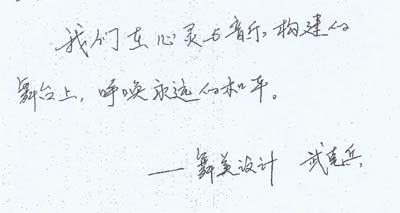 我们在心灵与音乐构建的
舞台上，呼唤永远的和平。
——舞美设计 武克兵